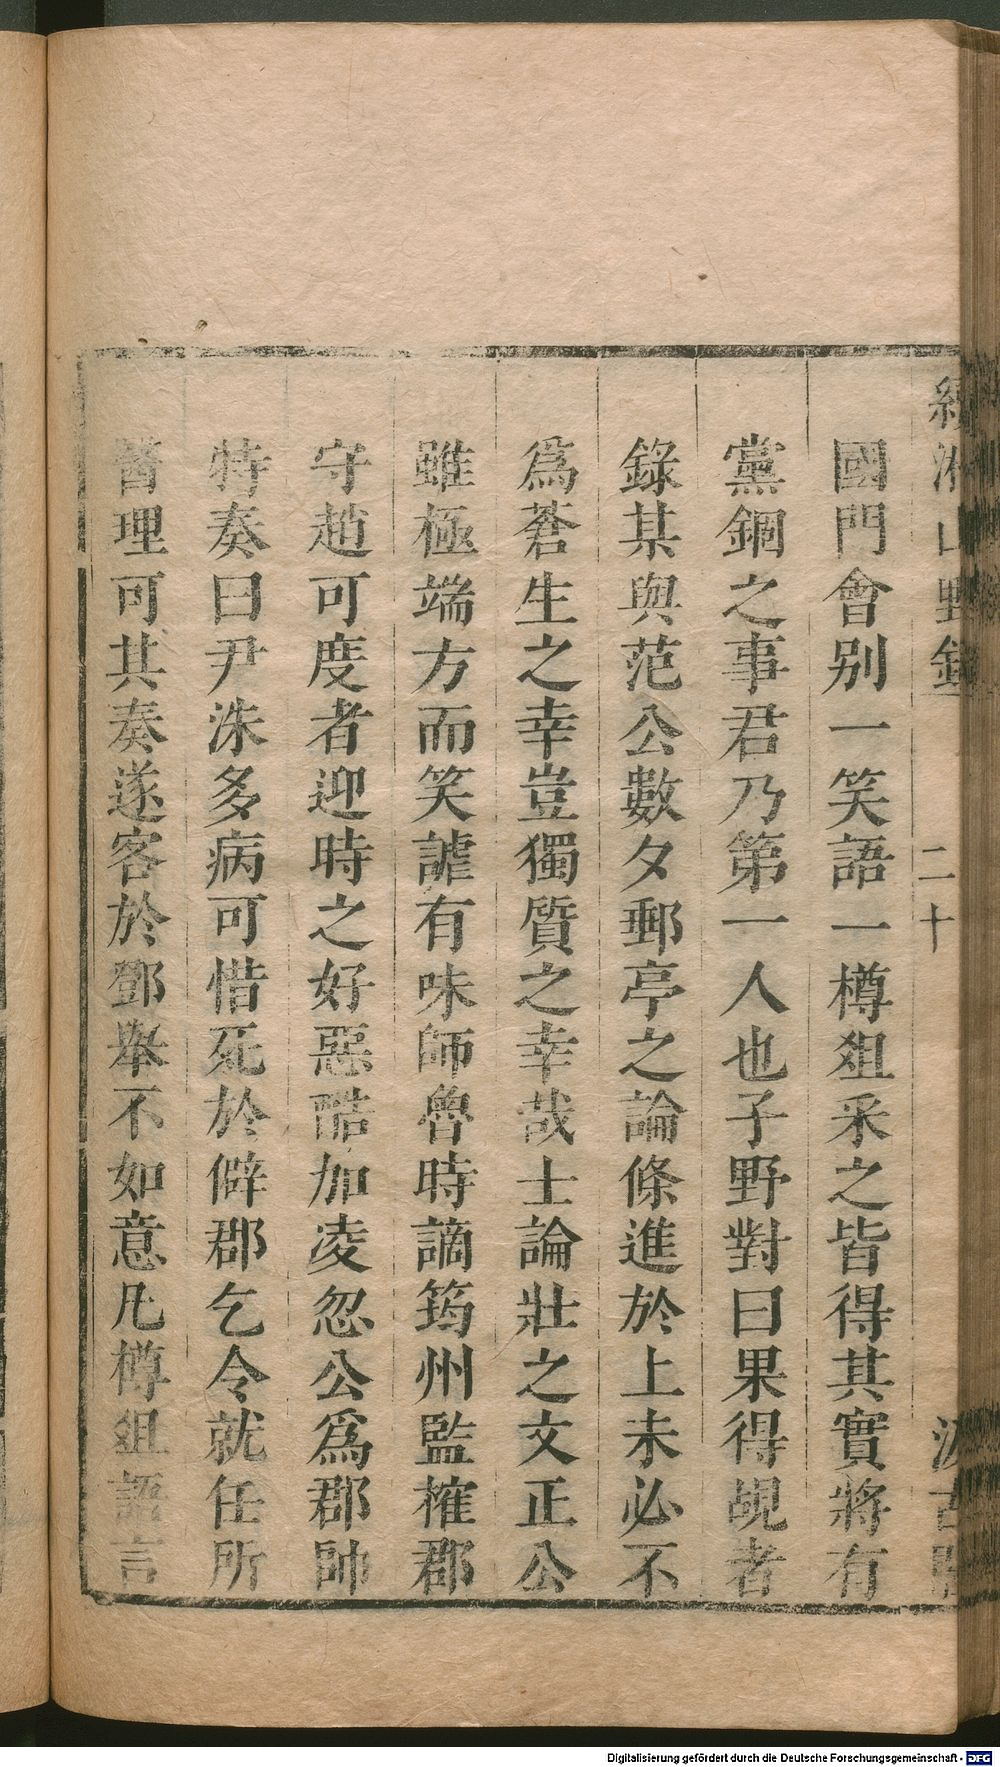 續湘山野錄
二十
汲古閣
國門會别一笑語一樽俎采之皆得其實將有
黨錮之事君乃第一人也子野對曰果得覘者
錄某與范公數夕郵亭之論條進於上未必不
爲蒼生之幸豈獨質之幸哉士論壯之文正公
雖極端方而笑謔有味師魯時謫筠州監榷郡
守趙可度者迎時之好惡酷加凌忽公爲郡帥
特奏曰尹洙多病可惜死於僻郡乞令就任所
醫理可其奏遂客於鄧舉不如意凡樽俎語言
Digitalisierung gefördert durch die Deutsche Forschungsgemeinschaft - DFG